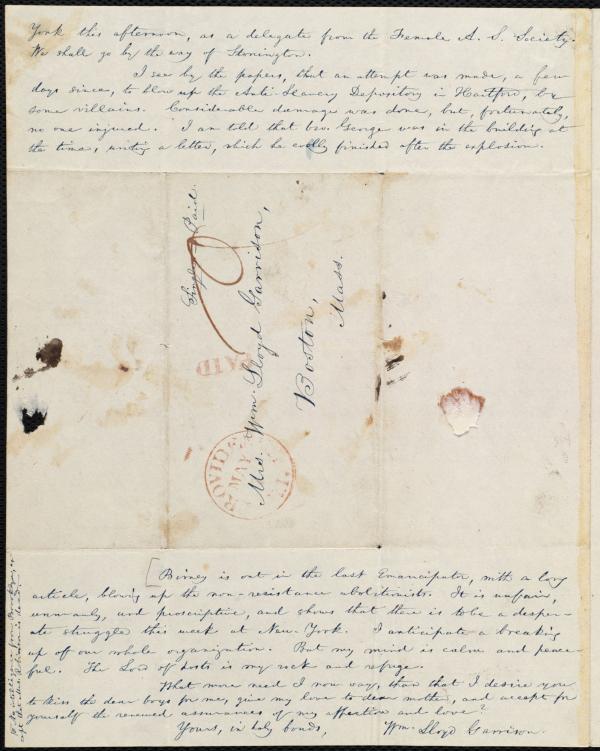 York this afternoon, as a delegate from the Female A. S. Society.
We shall go by the way of Stonington.
I see by the papers, that an attempt was made, a few
days since, to blow up the Anti-Slavery Depository in Hartford, by
some villains. Considerable damage was done, but, fortunately,
no one injured. I am told that bro. George was in the building at
the time, writing a letter, which he coolly finished after the explosion.
Single
Paid.
PAID
Mrs. Wm. Lloyd Garrison,
Boston,
Mass.
PROVIDE
MAY
R.I.
[Birney is out in the last Emancipator, with a long
article, blowing up the non-resistance abolitionists. It is unfair,
unmanly, and proscriptive, and shows that there is to be a desper-
ate struggle this week at New York. I anticipate a breaking
up of our whole organization. But my mind is calm and peace-
ful. The Lord of hosts is my rock and refuge.
What more need I now say, than that I desire you
to kiss the dear boys for me, give my love to dear mother, and accept for
yourself the renewed assurances of my affection and love?
Yours, in holy bonds,
Wm. Lloyd Garrison.
intelligence from Brooklyn,